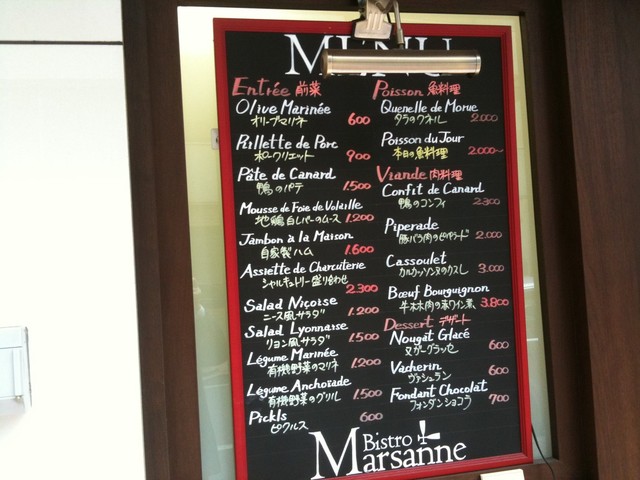 MENU
Entrée 前菜
Olive Marinée
オリーブマリネ 600
Rillette de Porc
ポークリエット 900
Pâte de Canard
鴨のパテ 1.500
Mousse de Foie de Volaille
地鶏白レバーのムース 1.200
Jambon à la Maison
自家製ハム 1.600
Assiette de Charcuterie
シャルキュトリー盛り合わせ 2.300
Salad Niçoise
ニース風サラダ 1.200
Salad Lyonnaise
リヨン風サラダ 1.500
Légume Marinée
有機野菜のマリネ 1.200
Légume Anchoïade
有機野菜のグリル 1.500
Pickls
ピクルス 600
Poisson 魚料理
Quenelle de Morue
タラのクネル 2.000
Poisson du Jour
本日の魚料理 2.000~
Viande 肉料理
Confit de Canard
鴨のコンフィ 2.300
Piperade
豚バラ肉のピペラード 2.000
Cassoulet
カルカッソンヌのカスレ 3.000
Bœuf Bourguignon
牛ホホ肉の赤ワイン煮 3.800
Dessert デザート
Nougat Glacé
ヌガーグラッセ 600
Vacherin
ヴァシュラン 600
Fondant Chocolat
フォンダンショコラ 700
Bistro
Marsanne